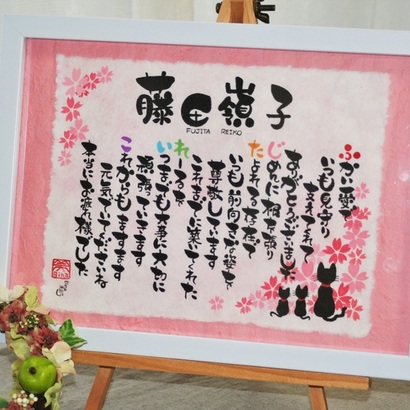 藤田嶺子
FUJITA REIKO
ふかい愛で
いつも見守り
支えてくれて
ありがとうございました
じめんに根を張り
たよれる存在で
いつも前向きな姿を
尊敬しています
これまでに築いてくれた
れールを
いつまでも大事に大切に
頑張っていきます
これからもますます
元気でいてくださいね
本当にお疲れ様でした